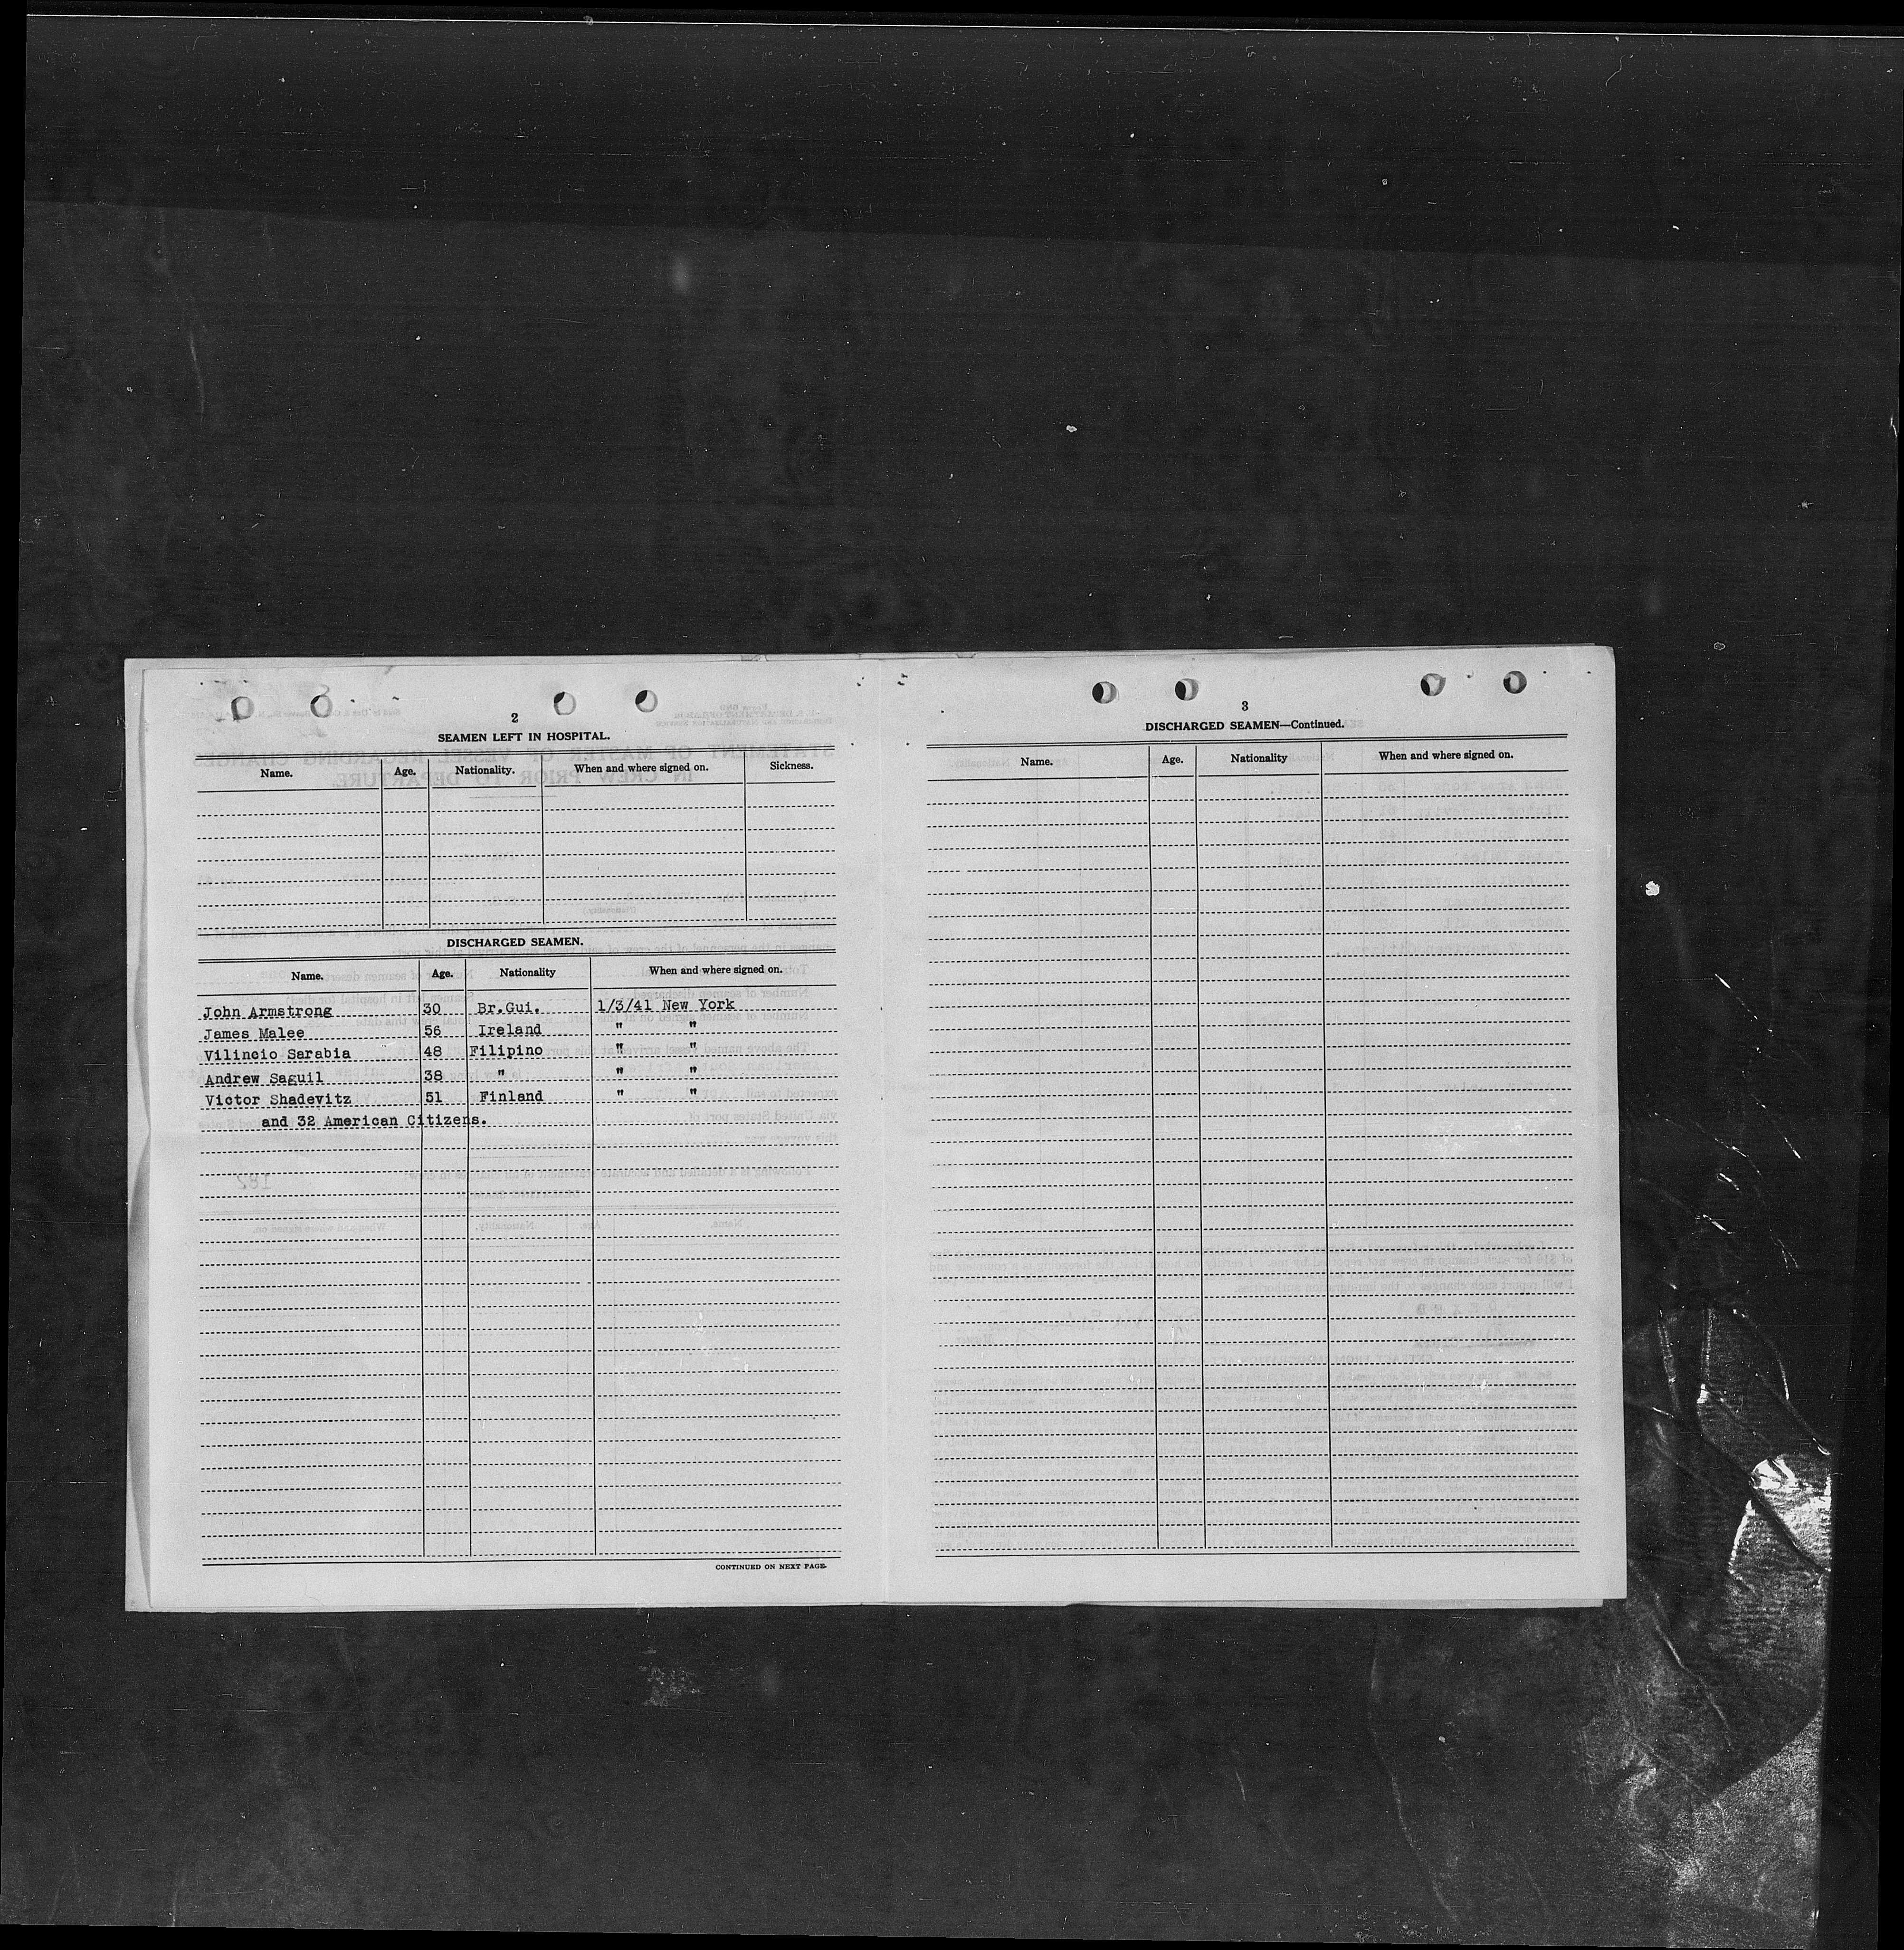 2
SEAMEN LEFT IN HOSPITAL.
Name. Age. Nationality. When and where signed on. Sickness.
DISCHARGED SEAMEN.
Name. Age. Nationality When and where signed on.
John Armstrong 30 Br.Gui. 1/3/41 New York
James Malee 56 Ireland " "
Vilincio Sarabia 48 Filipino " "
Andrew Saguil 38 " " "
Victor Shadevitz 51 Finland " "
and 32 American Citizens.
CONTINUED ON NEXT PAGE.
3
DISCHARGED SEAMEN—Continued.
Name. Age. Nationality When and where signed on.